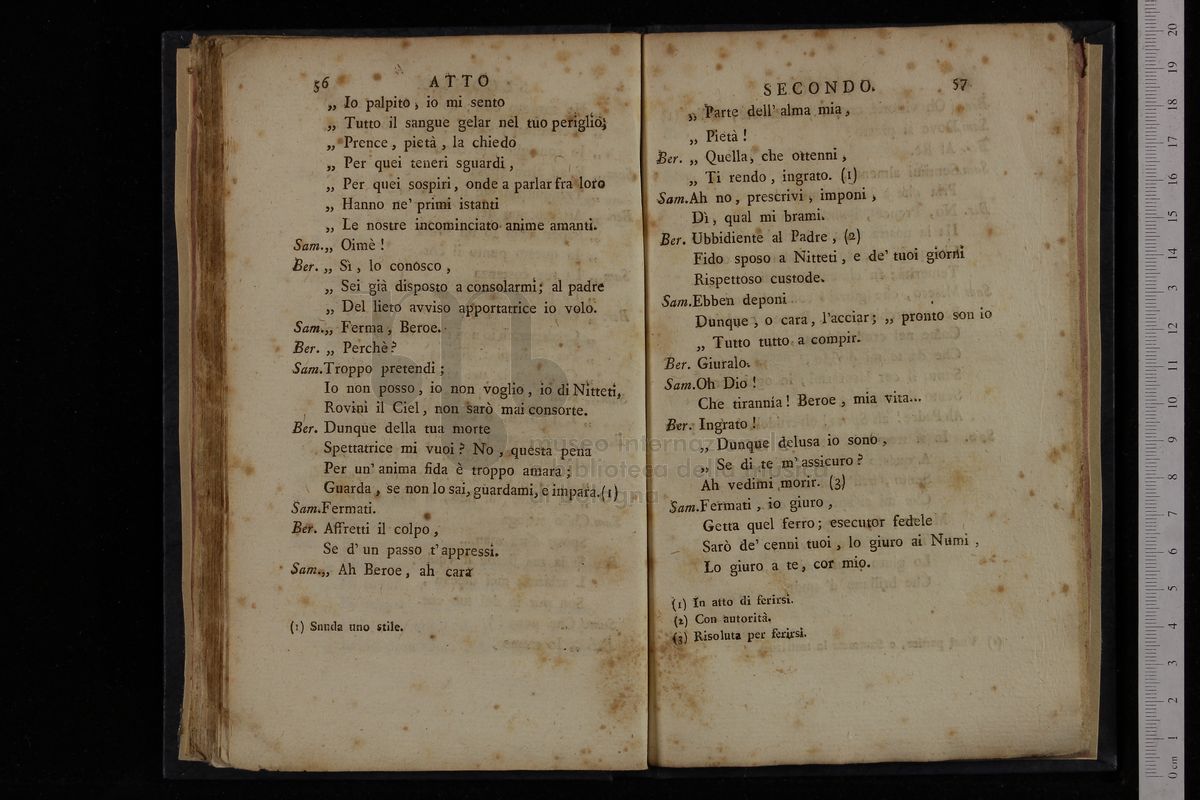 56 ATTO
„ Io palpito, io mi sento
„ Tutto il sangue gelar nel tuo periglio;
„ Prence, pietà, la chiedo
„ Per quei teneri sguardi,
„ Per quei sospiri, onde a parlar fra loro
„ Hanno ne' primi istanti
„ Le nostre incominciato anime amanti.
Sam.„ Oimè!
Ber. „ Sì, lo conosco,
„ Sei già disposto a consolarmi; al padre
„ Del lieto avviso apportatrice io volo.
Sam.„ Ferma, Beroe.
Ber. „ Perchè?
Sam.Troppo pretendi;
Io non posso, io non voglio, io di Nitteti,
Rovini il Ciel, non sarò mai consorte.
Ber. Dunque della tua morte
Spettatrice mi vuoi? No, questa pena
Per un' anima fida è troppo amara;
Guarda, se non lo sai, guardami, e impara.(1)
Sam.Fermati.
Ber. Affretti il colpo,
Se d' un passo t'appressi.
Sam.„ Ah Beroe, ah cara
(1) Snuda uno stile.
SECONDO. 57
„ Parte dell' alma mia,
„ Pietà!
Ber. „ Quella, che ottenni,
„ Ti rendo, ingrato. (1)
Sam.Ah no, prescrivi, imponi,
Dì, qual mi brami.
Ber. Ubbidiente al Padre, (2)
Fido sposo a Nitteti, e de' tuoi giorni
Rispettoso custode.
Sam.Ebben deponi
Dunque, o cara, l'acciar; „ pronto son io
„ Tutto tutto a compir.
Ber. Giuralo.
Sam.Oh Dio!
Che tirannia! Beroe, mia vita...
Ber. Ingrato!
„ Dunque delusa io sono,
„ Se di te m' assicuro?
Ah vedimi morir. (3)
Sam.Fermati, io giuro,
Getta quel ferro; esecutor fedele
Sarò de' cenni tuoi, lo giuro ai Numi,
Lo giuro a te, cor mio.
(1) In atto di ferirsi.
(2) Con autorità.
(3) Risoluta per ferirsi.
museo internazionale
biblioteca della musica
di Bologna
0 cm 1 2 3 4 5 6 7 8 9 10 11 12 13 14 15 16 17 18 19 20